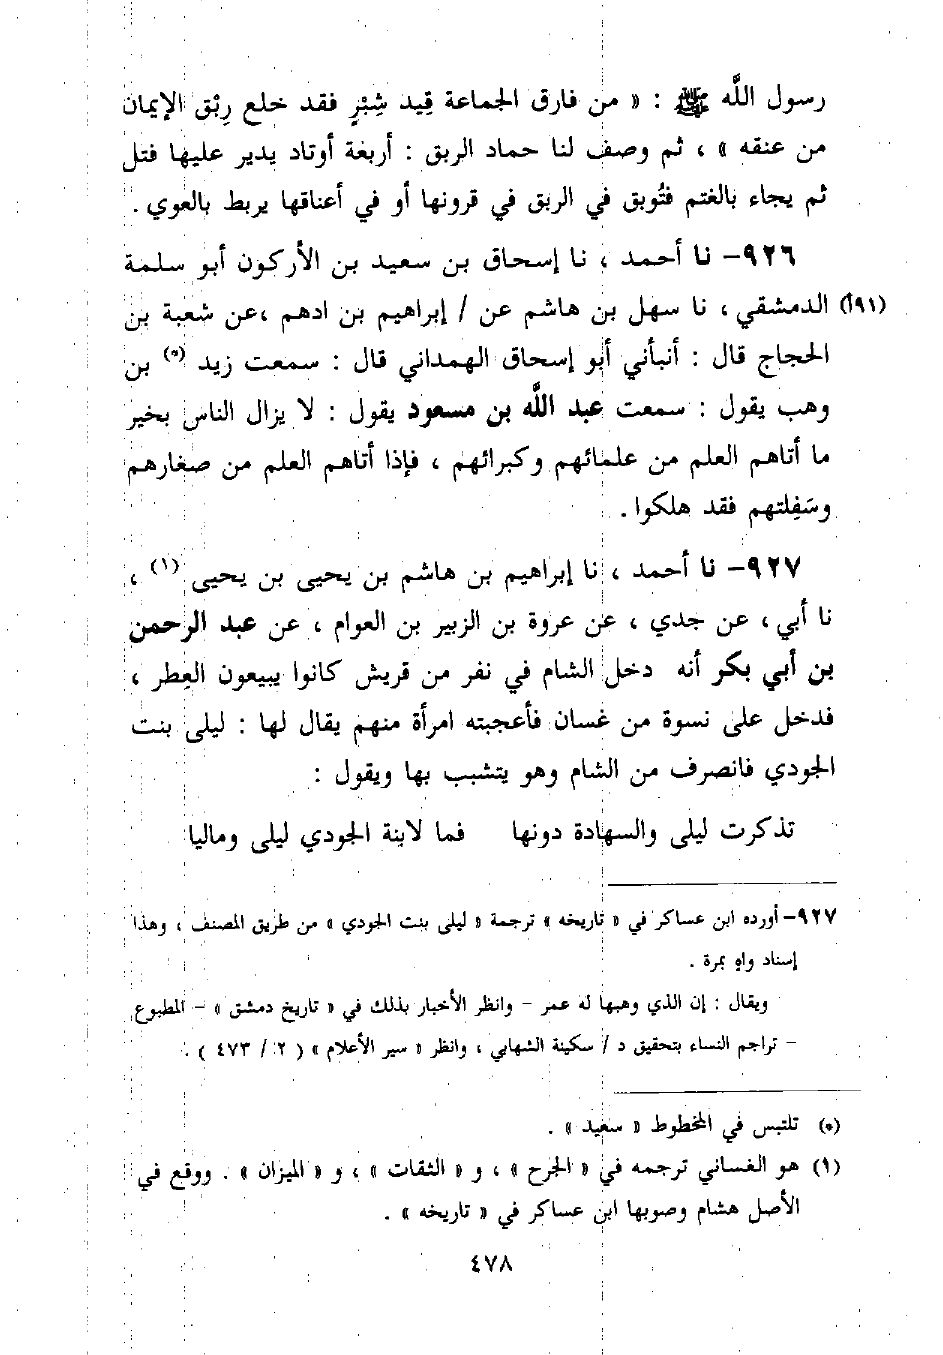 رسول اللَّه ﷺ : « من فارق الجماعة قِيد شِبْرٍ فقد خلع رِبْق الإيمان
من عنقه » ، ثم وصف لنا حماد الربق : أربعة أوتاد يدير عليها فتل
ثم يجاء بالغتم فتُوبق في الربق في قرونها أو في أعناقها يربط بالعوي .
٩٢٦– نا أحمد ، نا إسحاق بن سعيد بن الأركون أبو سلمة
(١٩١أ) الدمشقي ، نا سهل بن هاشم عن / إبراهيم بن ادهم ،عن شعبة بن
الحجاج قال : أنبأني أبو إسحاق الهمداني قال : سمعت زيد (*) بن
وهب يقول : سمعت عبد اللَّه بن مسعود يقول : لا يزال الناس بخير
ما أتاهم العلم من علمائهم وكبرائهم ، فإذا أتاهم العلم من صغارهم
وسَفِلتهم فقد هلكوا .
٩٢٧– نا أحمد ، نا إبراهيم بن هاشم بن يحيى بن يحيى (١) ،
نا أبي ، عن جدي ، عن عروة بن الزبير بن العوام ، عن عبد الرحمن
بن أبي بكر أنه دخل الشام في نفر من قريش كانوا يبيعون العِطر ،
فدخل على نسوة من غسان فأعجبته امرأة منهم يقال لها : ليلى بنت
الجودي فانصرف من الشام وهو يتشبب بها ويقول :
تذكرت ليلى والسهادة دونها فما لابنة الجودي ليلى وماليا
٩٢٧– أورده ابن عساكر في « تاريخه » ترجمة « ليلى بنت الجودي » من طريق المصنف ، وهذا
إسناد واهٍ بمرة .
ويقال : إن الذي وهبها له عمر – وانظر الأخبار بذلك في « تاريخ دمشق » – المطبوع
– تراجم النساء بتحقيق د / سكينة الشهابي ، وانظر « سير الأعلام » ( ٢ / ٤٧٣ ) .
(*) تلتبس في المخطوط « سعيد » .
(١) هو الغساني ترجمه في « الجرح » ، و « الثقات » ، و « الميزان » . ووقع في
الأصل هشام وصوبها ابن عساكر في « تاريخه » .
٤٧٨